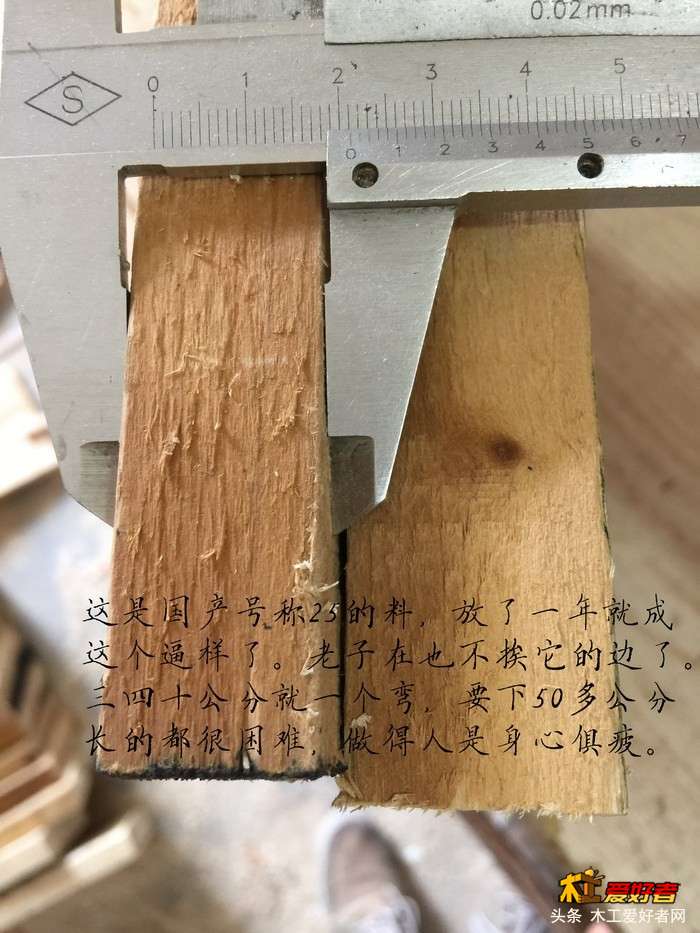 0.02mm
S
0 1 2 3 4 5
0 1 2 3 4 5 6 7
这是国产号称25的料，放了一年就成
这个逼样了。老子在也不挨它的边了。
三四十公分就一个弯，要下50多公分
长的都很困难，做得人是身心俱疲。
木工爱好者
头条 木工爱好者网